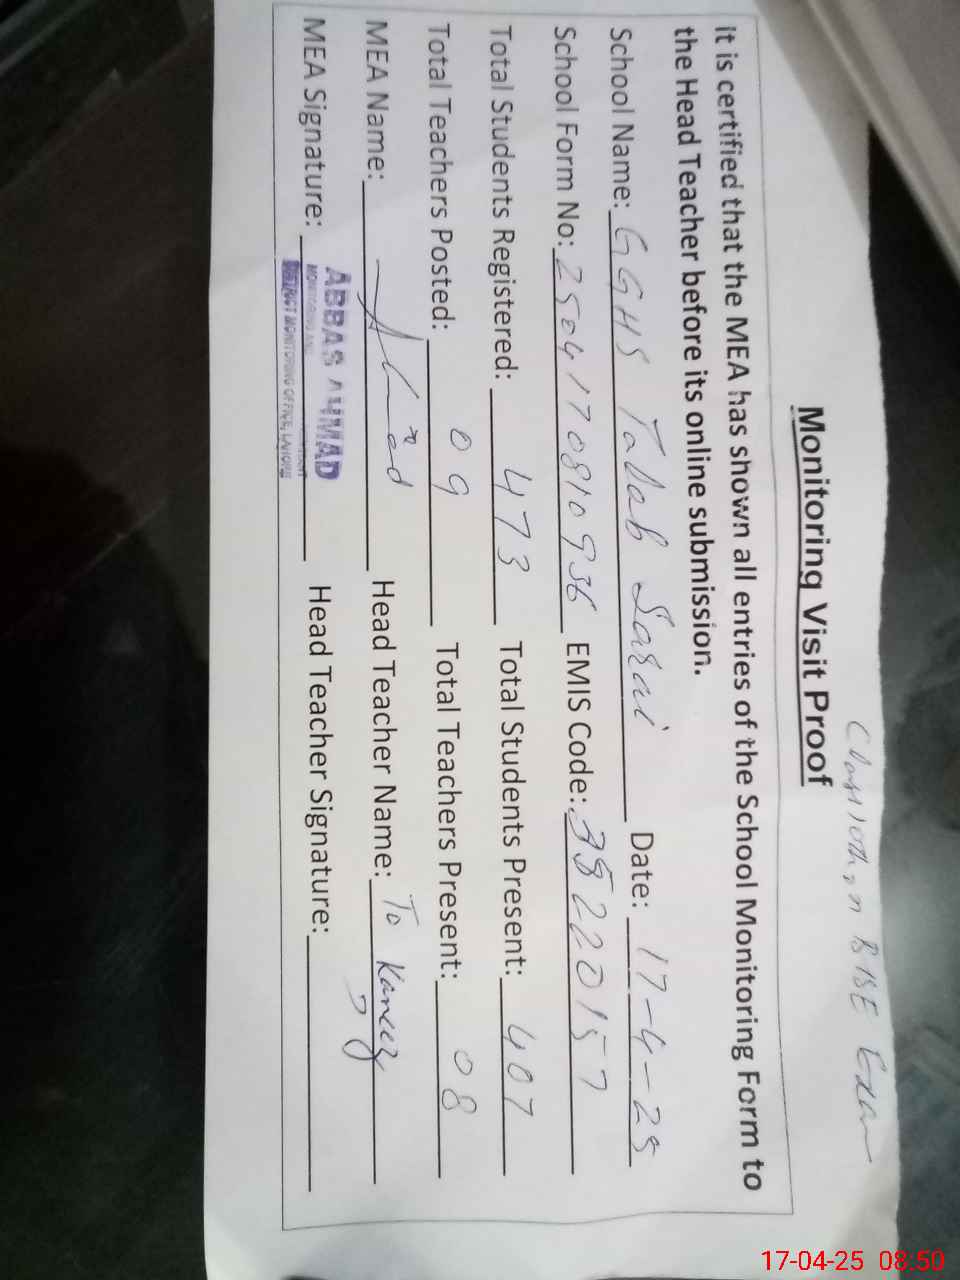 Class 10th, n BISE Exam
Monitoring Visit Proof
It is certified that the MEA has shown all entries of the School Monitoring Form to
the Head Teacher before its online submission.
School Name: GGHS Talab Sarai Date: 17-4-25
School Form No: 2504170810936 EMIS Code: 35220157
Total Students Registered: 473 Total Students Present: 407
Total Teachers Posted: 09 Total Teachers Present: 08
MEA Name: Head Teacher Name: Kaneez
MEA Signature: Head Teacher Signature:
ABBAS AHMAD
MONITORING AND
DISTRICT MONITORING OFFICE, LAHORE
17-04-25 08:50